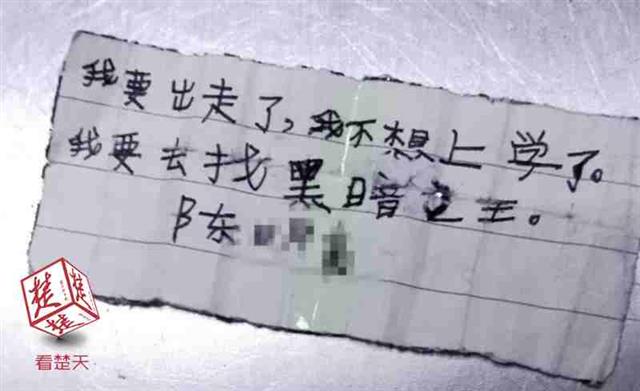 我要出走了，我不想上学了。
我要去找黑暗之王。
陈
看楚天